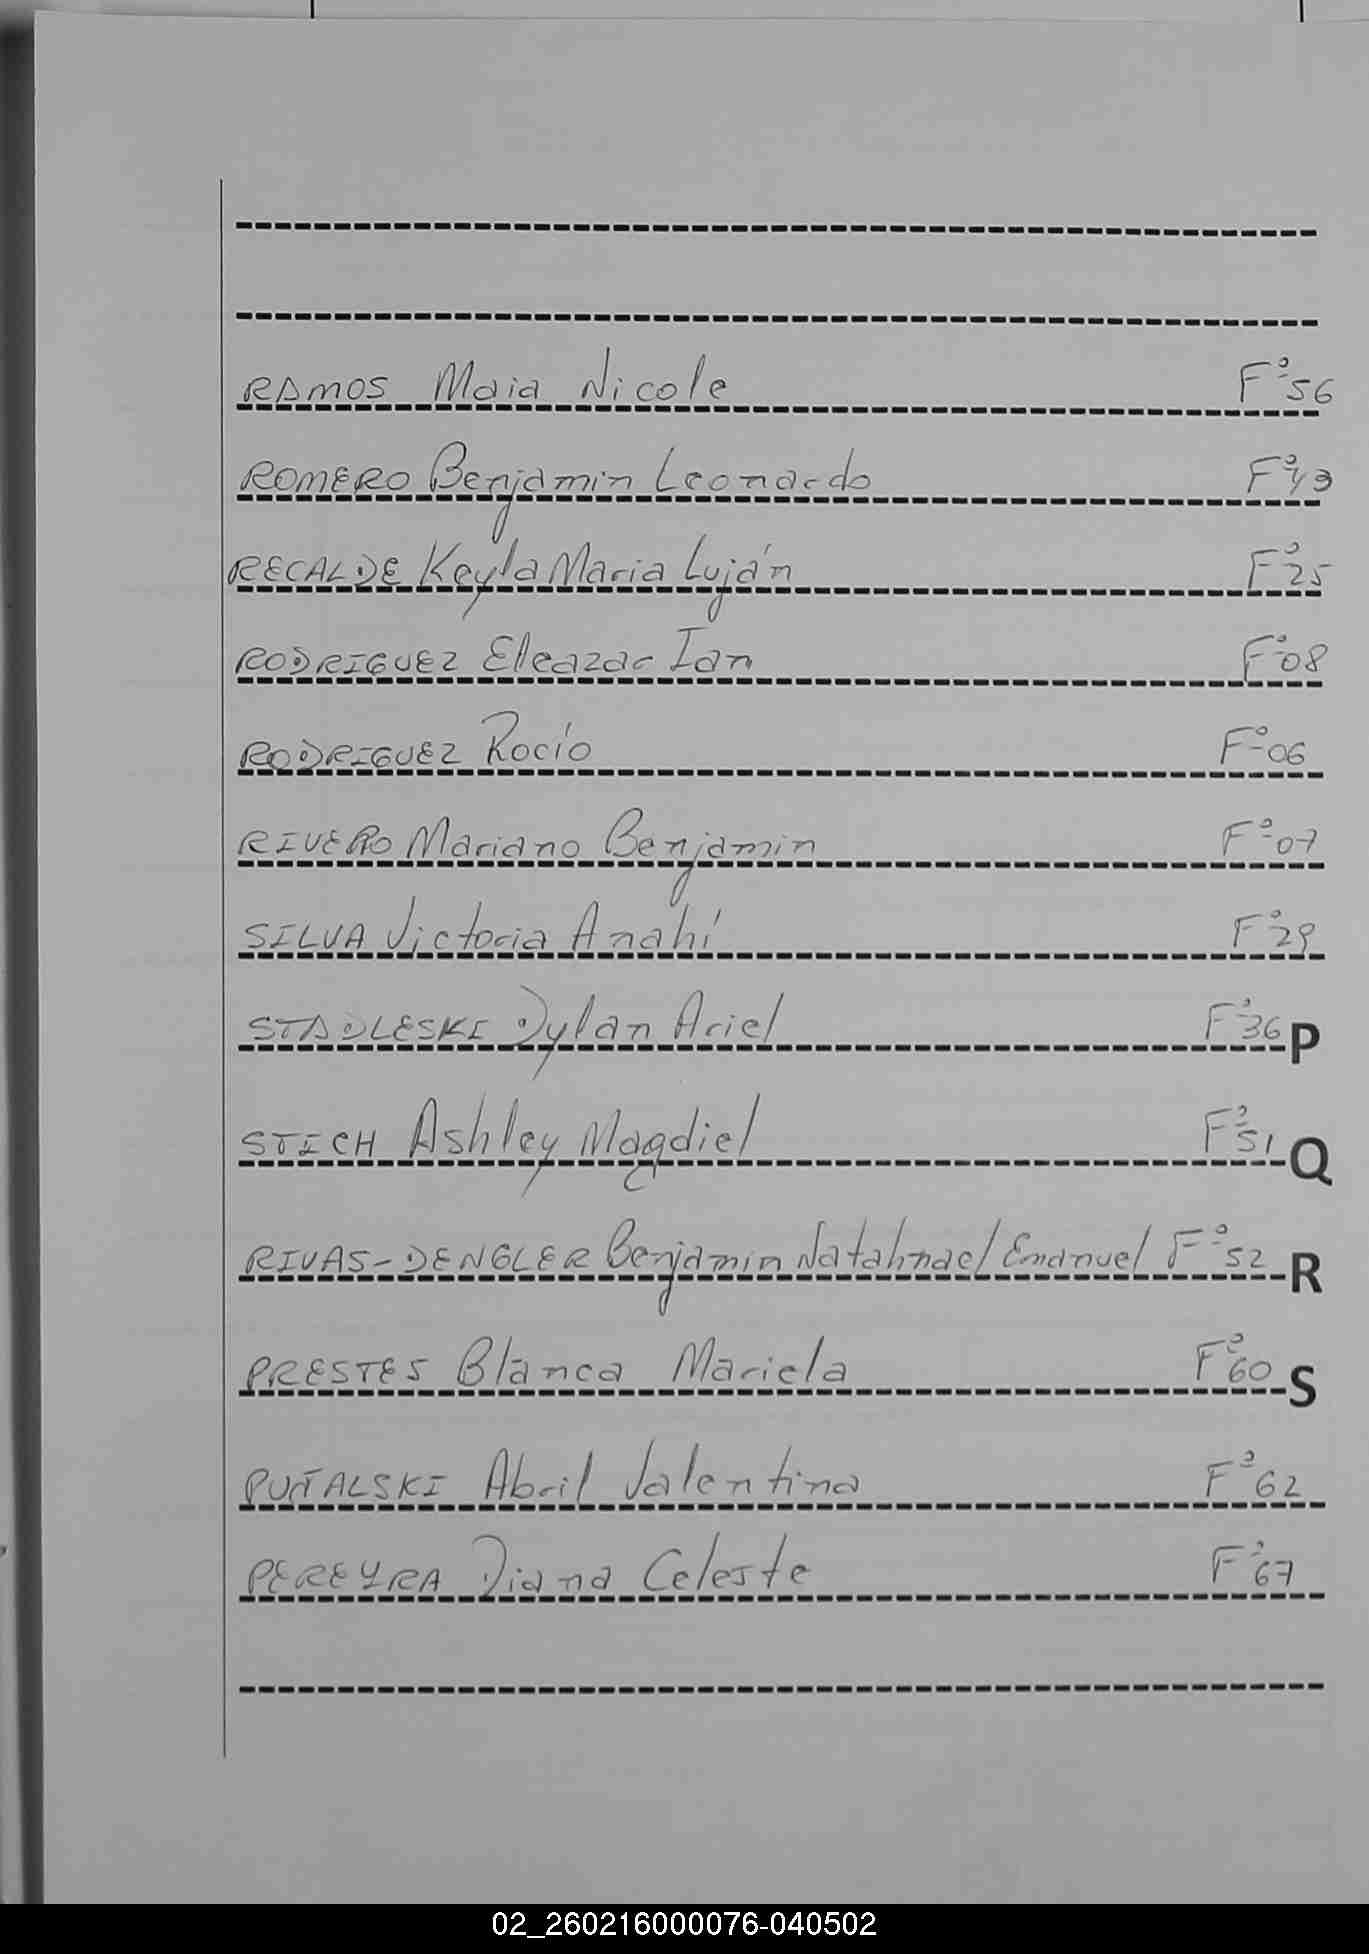 RAMOS Maia Nicole Fº56
ROMERO Benjamin Leonardo Fº43
RECALDE Keyla Maria Luján Fº25
RODRIGUEZ Eleazar Ian Fº08
RODRIGUEZ Rocío Fº06
RIVERO Mariano Benjamin Fº07
SILVA Victoria Anahí Fº29
STADLESKI Dylan Ariel Fº36 P
STICH Ashley Magdiel Fº51 Q
RIVAS-DENGLER Benjamin Natahnael Emanuel Fº52 R
PRESTES Blanca Mariela Fº60 S
PUÑALSKI Abril Valentina Fº62
PEREYRA Diana Celeste Fº67
02_260216000076-040502